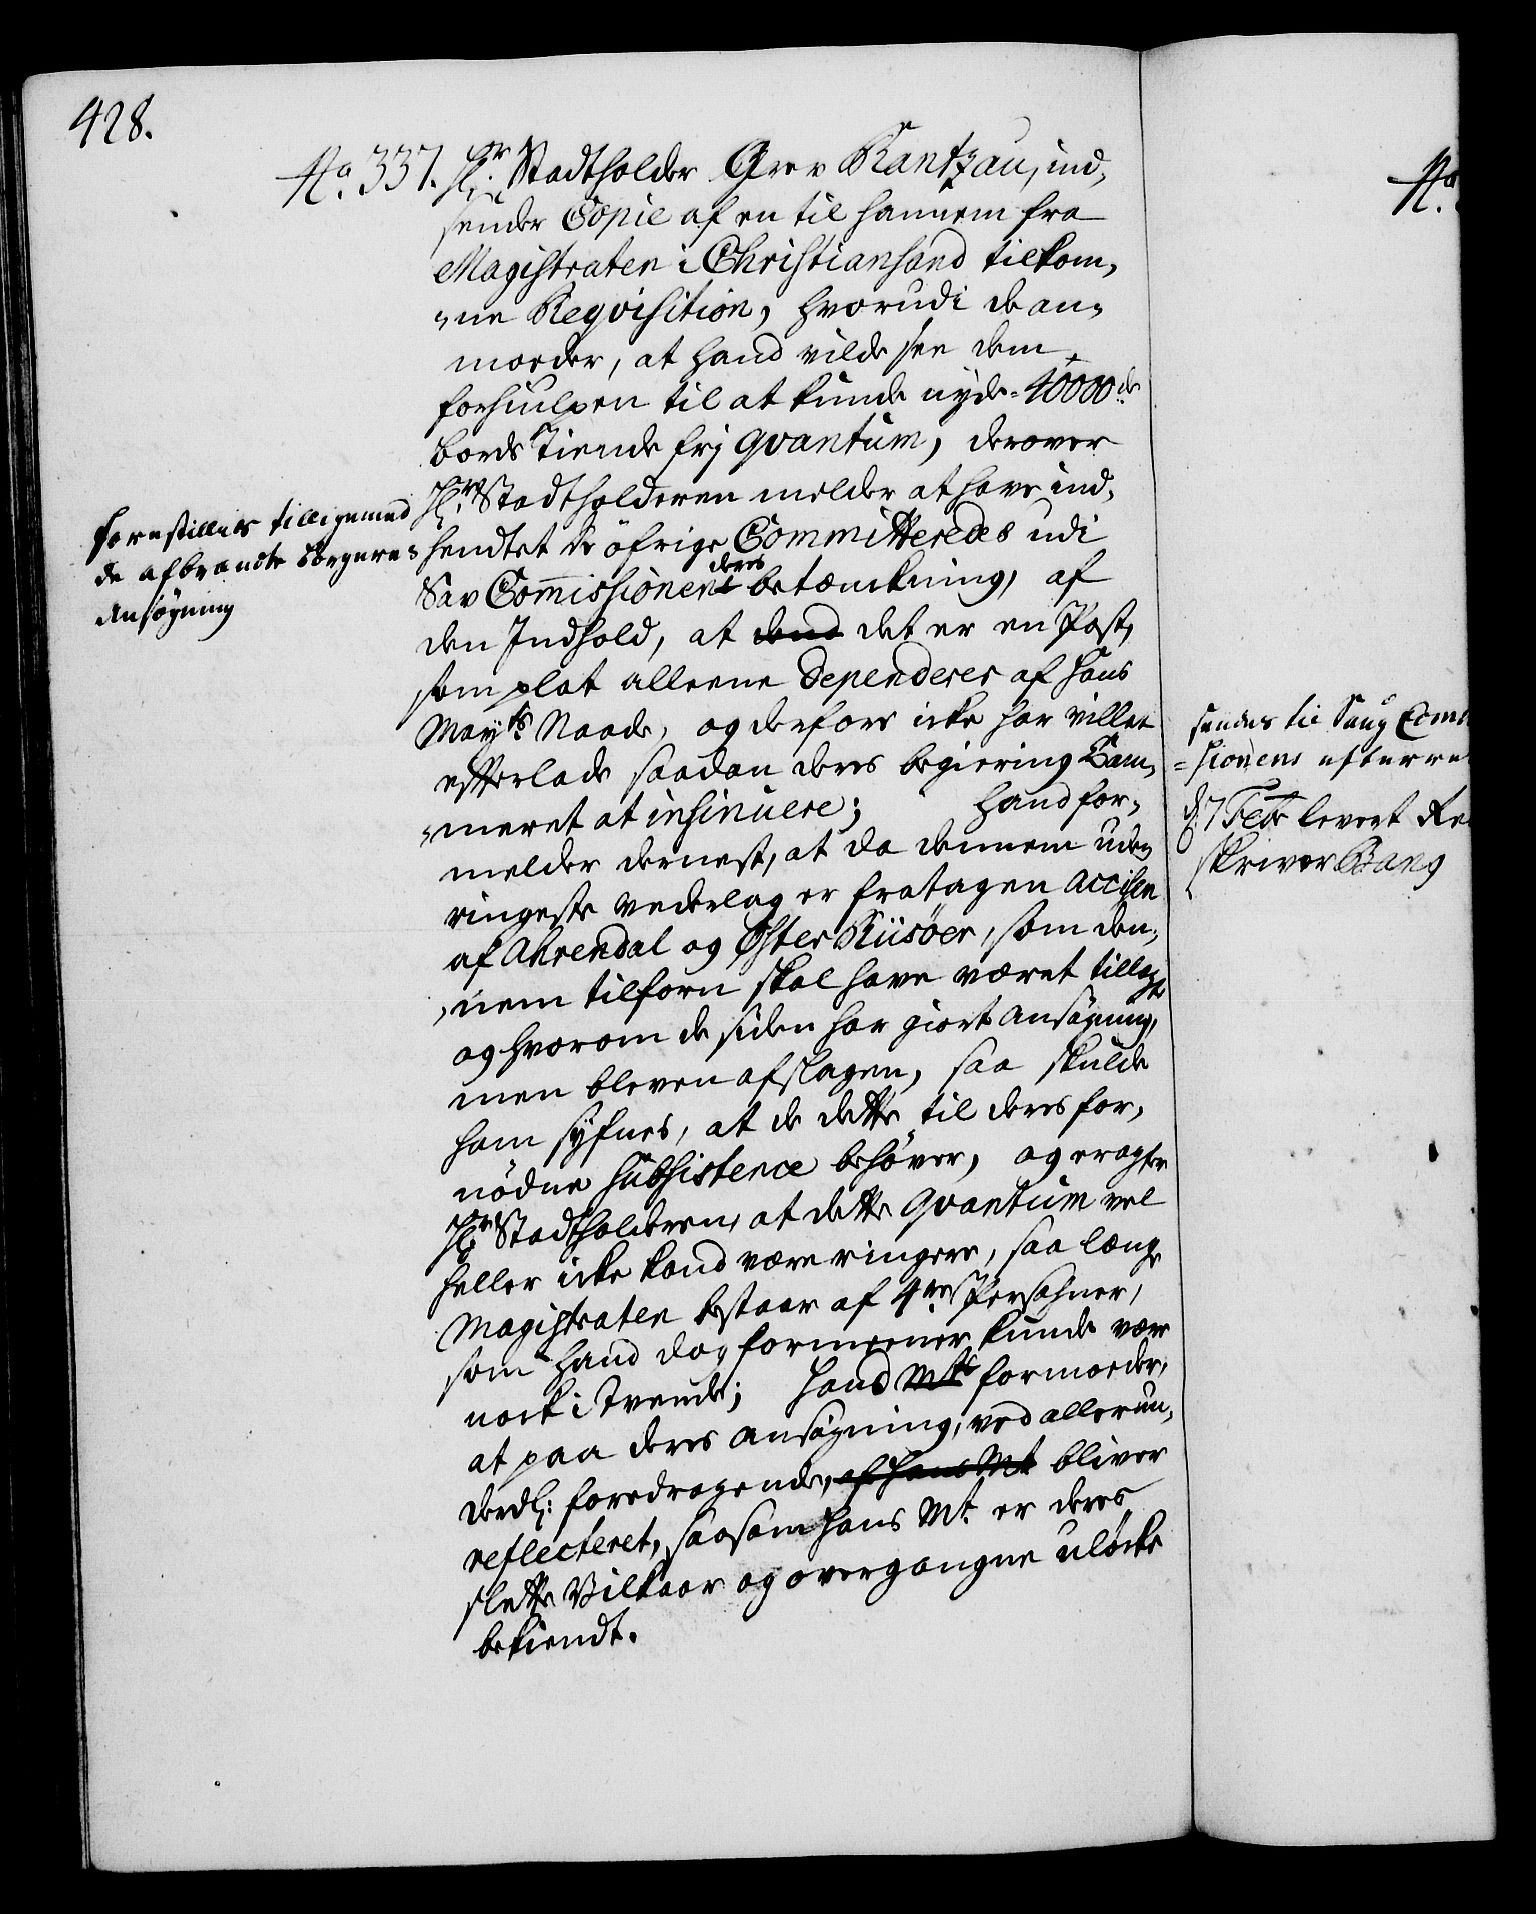 428.
No. 337. Hr. Stadtholder Grev Rantzau, ind„
sender Copie af en til hannem fra
Magistraten i Christiansand tilkom„
„ne Reqvisition, hvorudi de an„
moeder, at hand vilde see dem
forhiulpen til at kunde nyde 40000de
bords Tiende frj qvantum, derover
Hr. Stadtholderen melder at have ind„
hendtet de öfrige Committeredes udi
Sav Commissionen deres betænckning, af
den Indhold, at dend det er en Post,
som plat alleene dependerer af Hans
Mayts Naade, og derfore icke har villet
efterlade saadan deres begiering Cam„
„meret at insinuere; Hand for„
melder dernest, at da dennem uden
ringeste vederlag er fratagen Accisen
af Ahrendal og Öster Riisöer, som den„
„nem tilforn skal have været tillagt
og hvorom de siden har giort Ansögning,
men bleven afslagen, saa skulde
ham syfnes, at de dette til deres for„
nödne Subsistence behöver, og eragter
Hr. Stadtholderen, at dette qvantum vel
heller icke kand være ringere, saa længe
Magistraten bestaar af 4re Persohner,
som hand dog formeener kunde være
nock i Tvende; Hand Mts formoeder,
at paa deres ansögning, ved allerun„
derdl: foredragende, af Hans Mt bliver
reflecteret, saasom Hans Mt. er deres
slette Vilkaar og overgangne ulöcke
bekiendt.
forestilles tilligemed
de afbrandte Borgeres
Ansögning
No.
sendes til Saug Com
„sionens efterre
d. 7 Febr leveret Re
skriver Bang